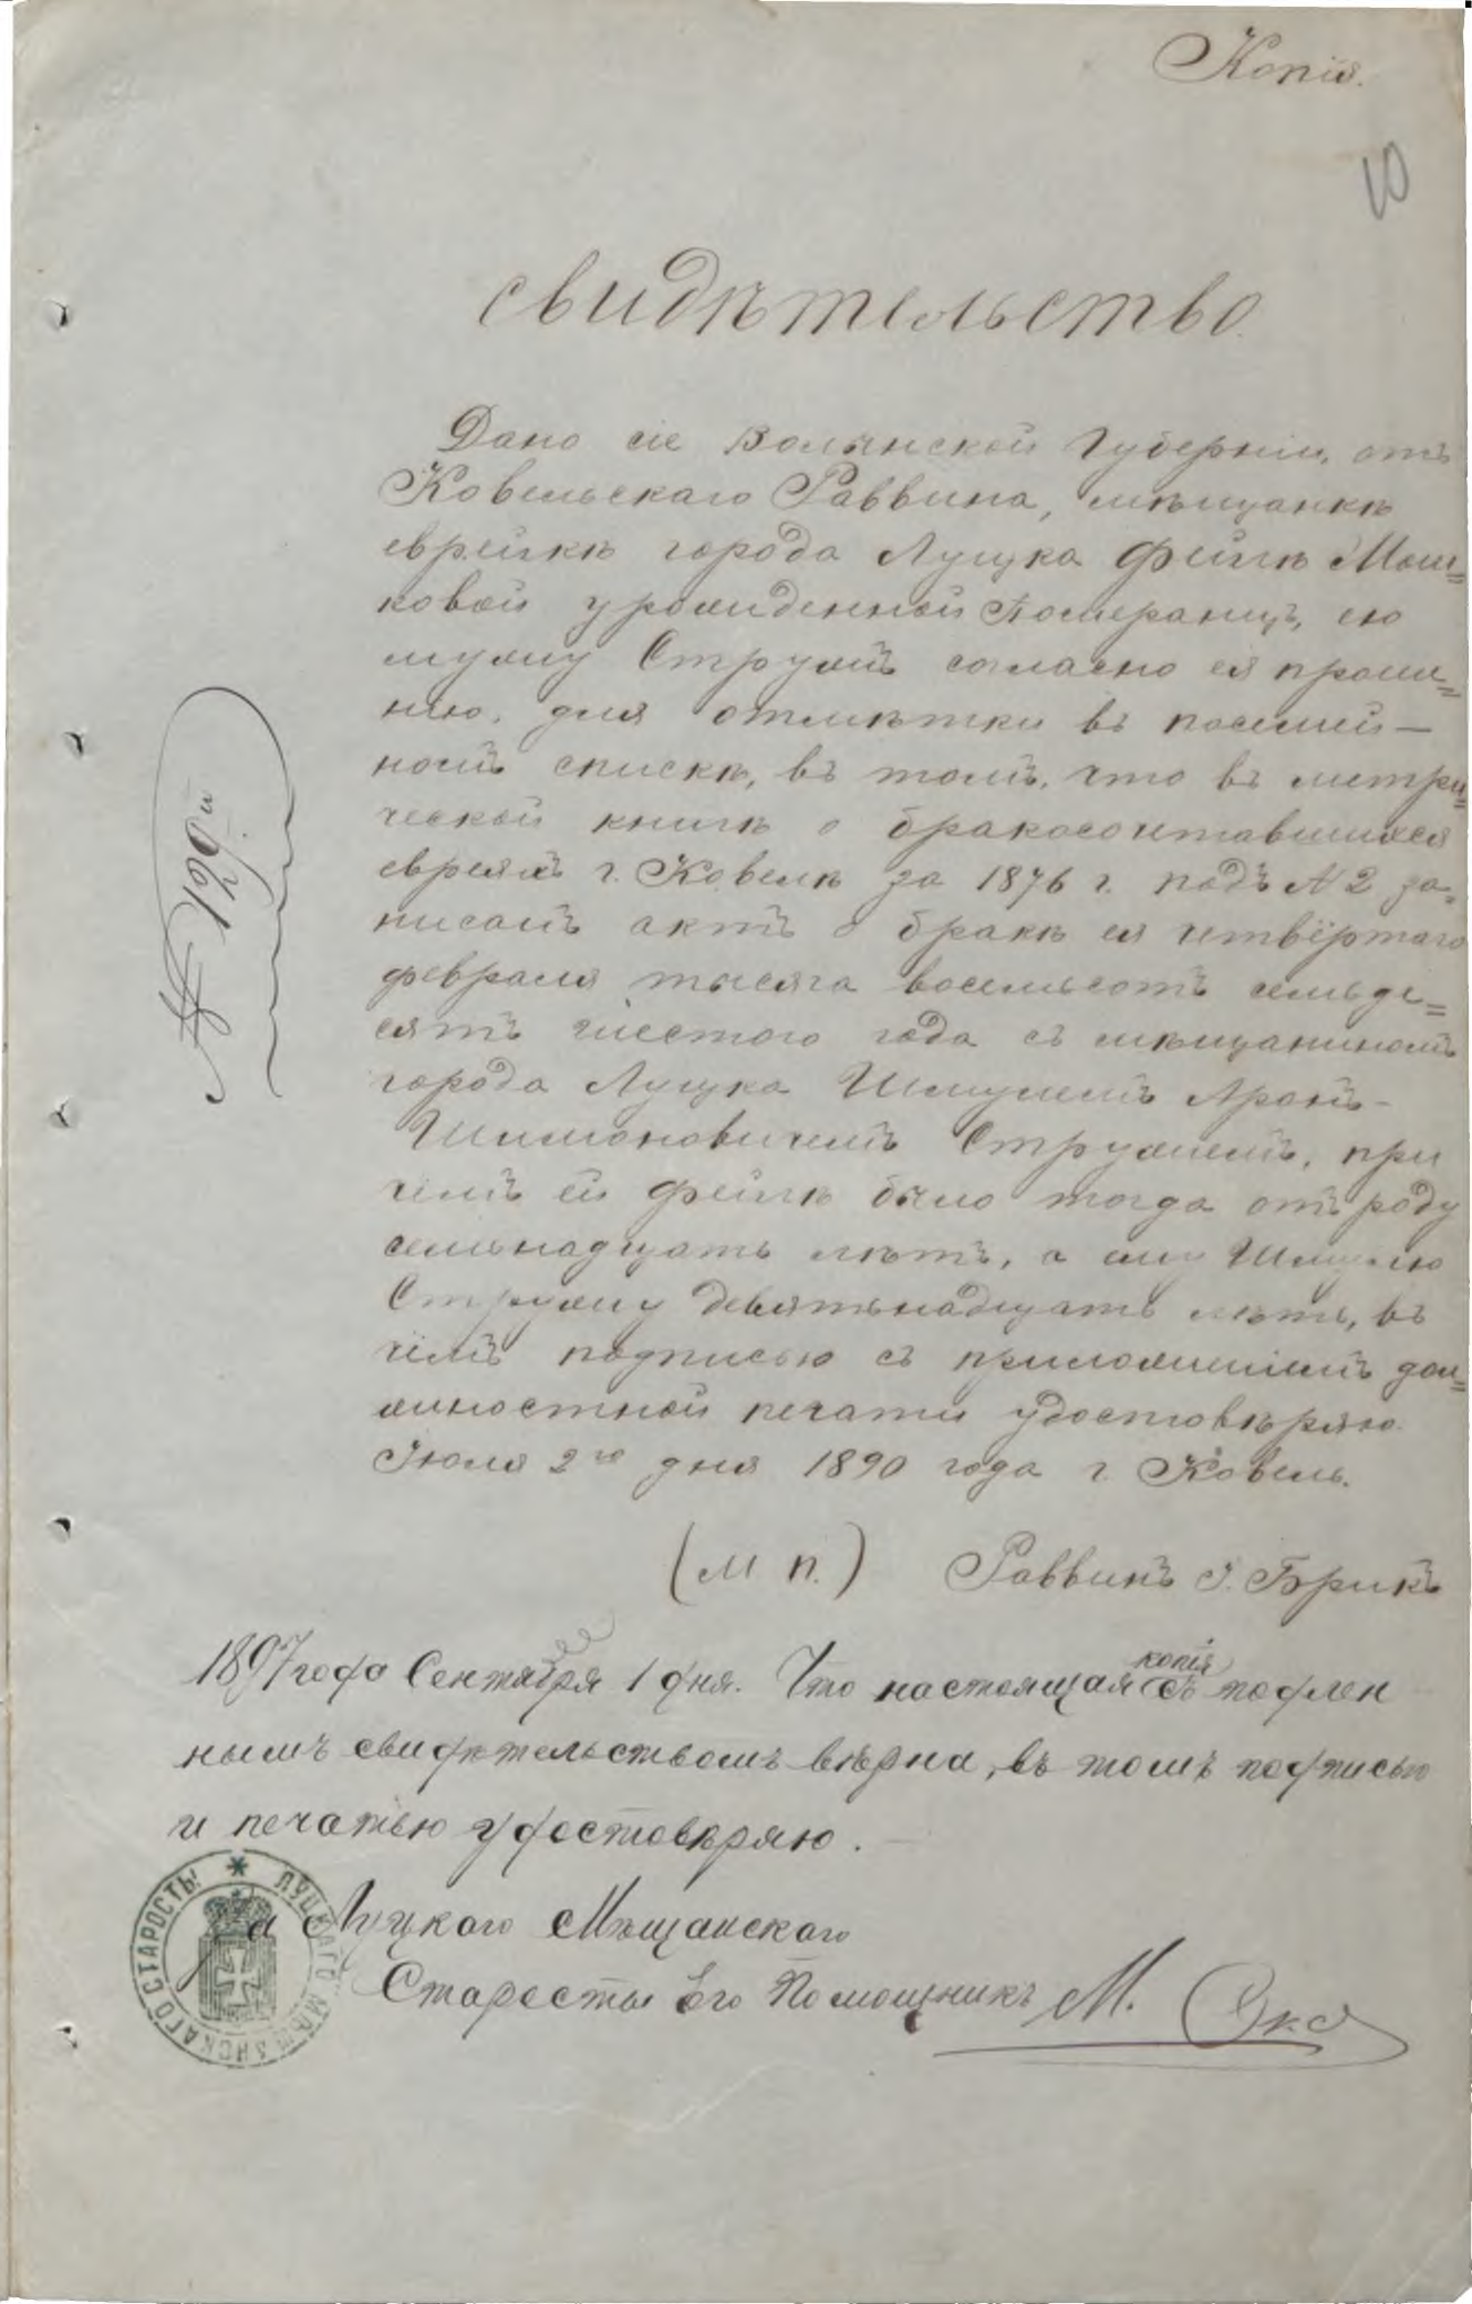 Копія.
10
свидѣтельство.
Дано сіе Волынской Губерніи, отъ
Ковельскаго Раввина, мѣщанкѣ
еврейкѣ города Луцка Фейгѣ Мош=
ковой урожденной Померанцъ, по
мужу Стружъ согласно ея проше=
нію, для отмѣтки въ посемей-
номъ спискѣ, въ томъ, что въ метри=
ческой книгѣ о бракосочетавшихся
евреяхъ г. Ковелѣ за 1876 г. подъ № 2 за=
писанъ актъ о бракѣ ея четвёртаго
февраля тысяча восемьсотъ семьде=
сятъ шестого года съ мѣщаниномъ
города Луцка Шмулемъ Аронъ-
Шимоновичемъ Стружемъ, при
чёмъ ей Фейгѣ было тогда отъ роду
семьнадцать лѣтъ, а ему Шмулю
Стружу девятьнадцать лѣтъ, въ
чёмъ подписью съ приложеніемъ дол=
жностной печати удостовѣряю.
Іюля 2го дня 1890 года г. Ковель.
(М П.) Раввинъ І. Брикъ
1897 года Сентября 1 дня. Что настоящая копія съ подлен
нымъ свидѣтельствомъ вѣрна, въ томъ подписью
и печатью удостовѣряю.
За Луцкого Мѣщанского
Старосты Его Помощникъ М.
ЛУЦКАГО МѢЩАНСКАГО СТАРОСТЫ